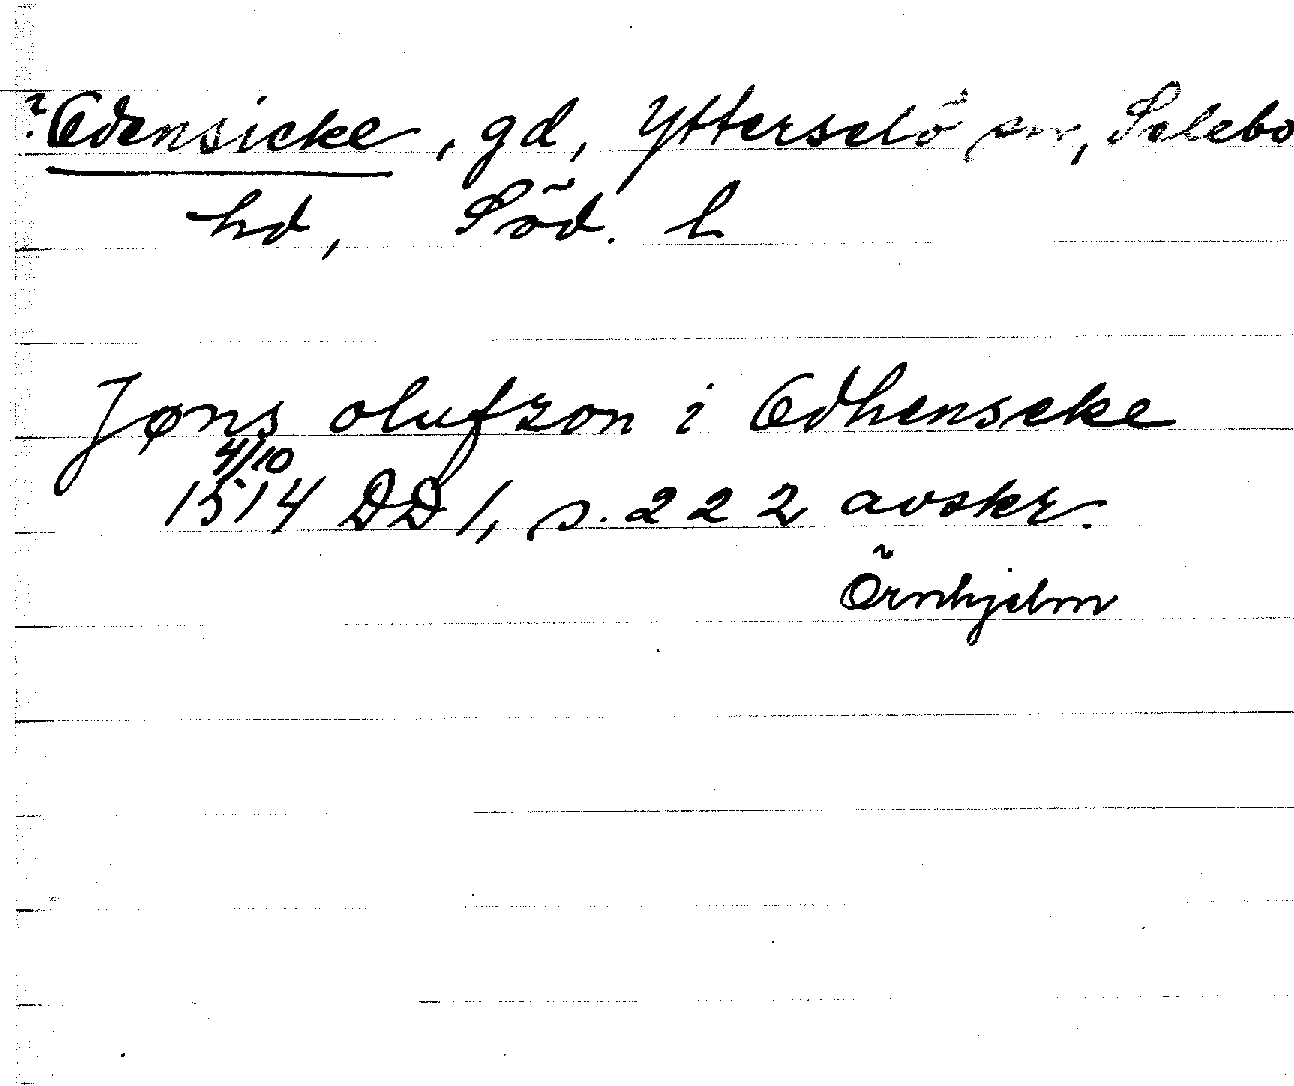 ? Edensicke, gd, Ytterselö sn, Selebo
hd, Söd. l
Jøns olufzon i Edhenseke
4/10
1514 DD 1, s. 222 avskr.
Örnhjelm